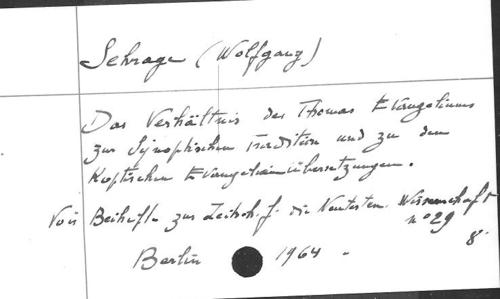 Schrage (Wolfgang)
Das Verhältnis des Thomas Evangeliums
zur Synoptischen Tradition und zu den
Koptischen Evangelienübersetzungen.
Voir Beihefte zur Zeitsch. f. die Neutesten. Wissenschaft
n° 29
8°
Berlin 1964.